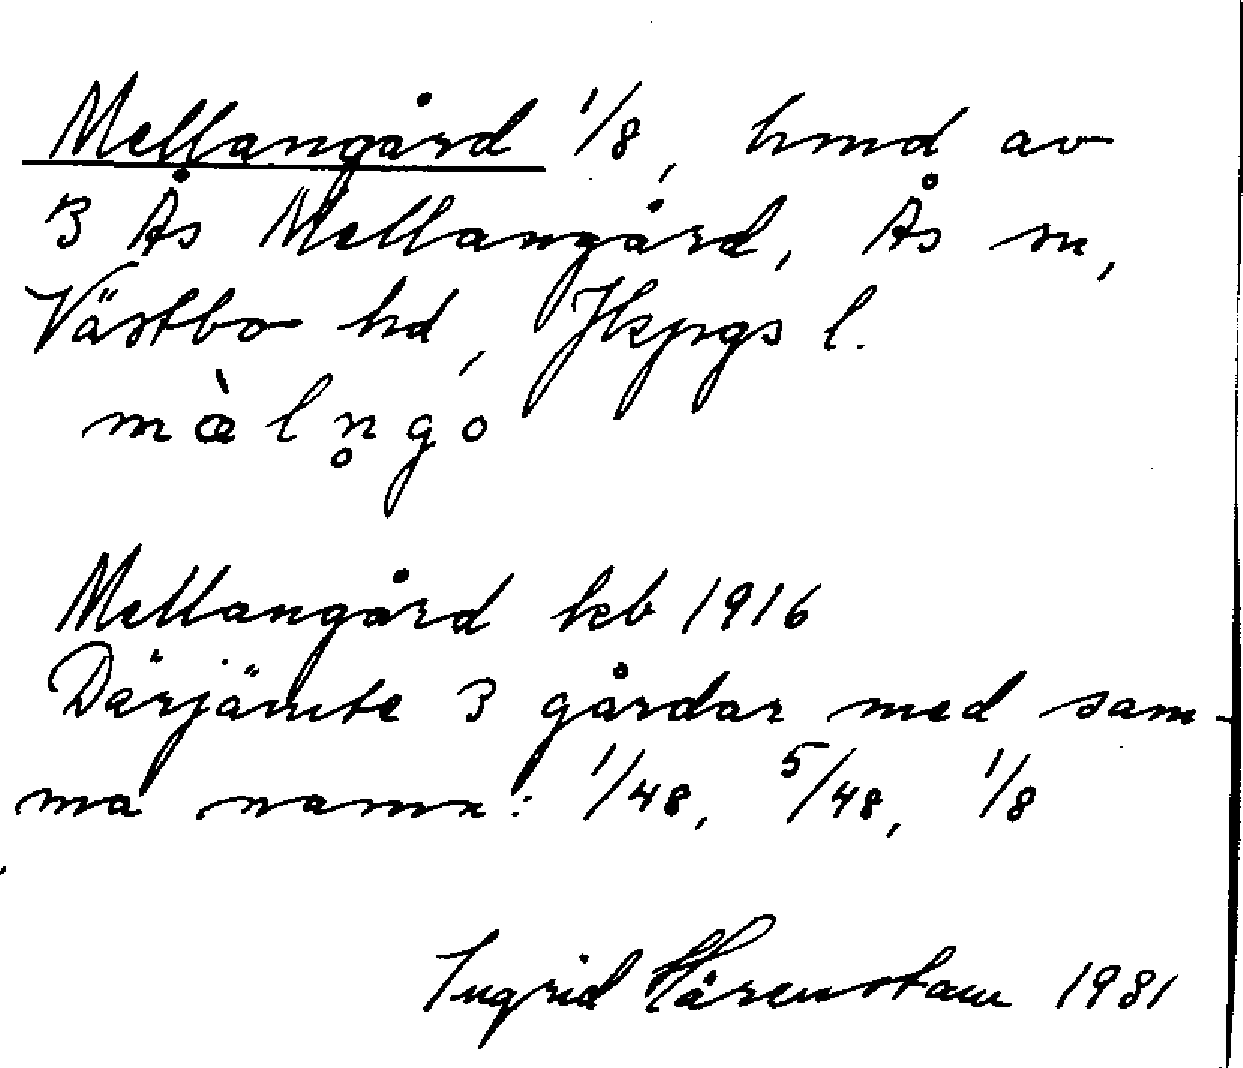 Mellangård 1/8, hmd av
3 Ås Mellangård, Ås sn,
Västbo hd, Jkpgs l.
mæ̀ln̥gó
Mellangård kb 1916
Därjämte 3 gårdar med sam-
ma namn: 1/48, 5/48, 1/8
Ingrid Härenstam 1981